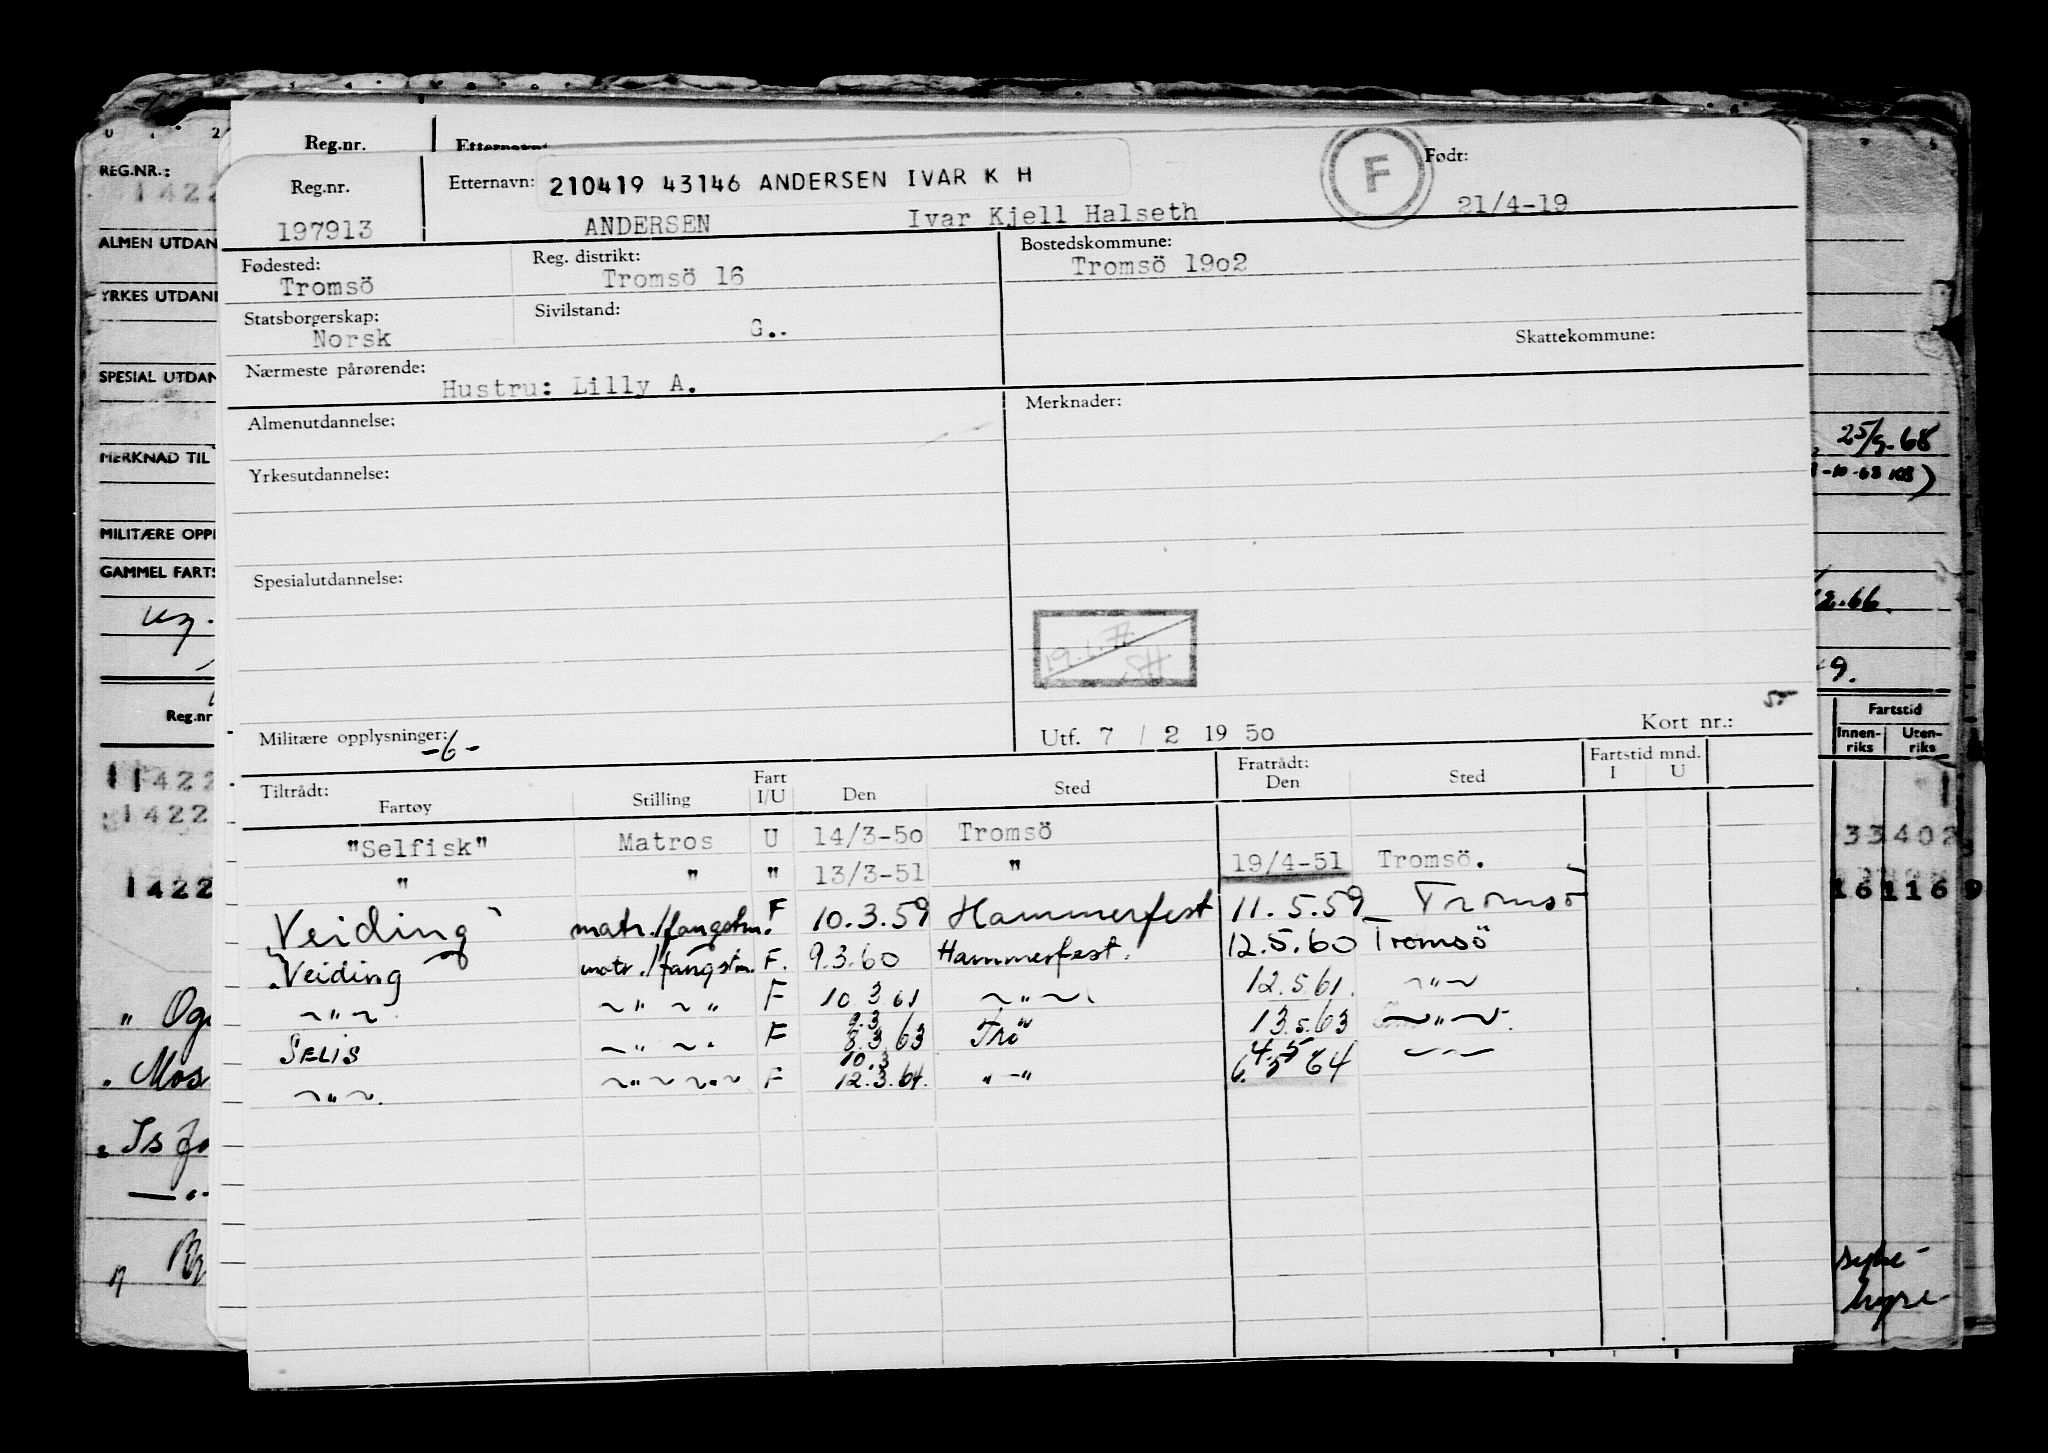 Reg.nr.
REG.NR.:
1422
Reg.nr.
Etternavn:
210419 43146 ANDERSEN IVAR K H
F
Født:
197913
ANDERSEN
Ivar Kjell Halseth
21/4-19
ALMEN UTDAN
Fødested:
Tromsö
Reg. distrikt:
Tromsö 16
Bostedskommune:
Tromsö 19o2
YRKES UTDAN
Statsborgerskap:
Norsk
Sivilstand:
G..
Skattekommune:
SPESIAL UTDAN
Nærmeste pårørende:
Hustru: Lilly A.
Almenutdannelse:
Merknader:
25/9.68
MERKNAD TIL
Yrkesutdannelse:
MILITÆRE OPPL
GAMMEL FARTS
Spesialutdannelse:
12.66.
9.
Reg.nr
Militære opplysninger:
-6-
Utf. 7 / 2 19 5o
Kort nr.:
Fartstid
Innen-
riks
Uten-
riks
Tiltrådt:
Fartøy
Stilling
Fart
I/U
Den
Sted
Fratrådt:
Den
Sted
Fartstid mnd.
I U
"Selfisk" Matros U 14/3-5o Tromsö
" " " 13/3-51 " 19/4-51 Tromsö.
Veiding matr./fangstm. F 10.3.59 Hammerfest 11.5.59 Tromsö
Veiding matr./fangstm. F. 9.3.60 Hammerfest. 12.5.60 Tromsö
~"~ ~"~" F 10 3 61 ~"~ 12.5.61. ~"~
SELIS ~"~. F 9.3 8.3 63 Trö 13.5.63 ~"~.
~"~. ~"~~"~ F 10.3 12.3.64. "-" 4.5 6.5 64 ~"~
1422
1422
1422
33402
161169
Mos
hyre